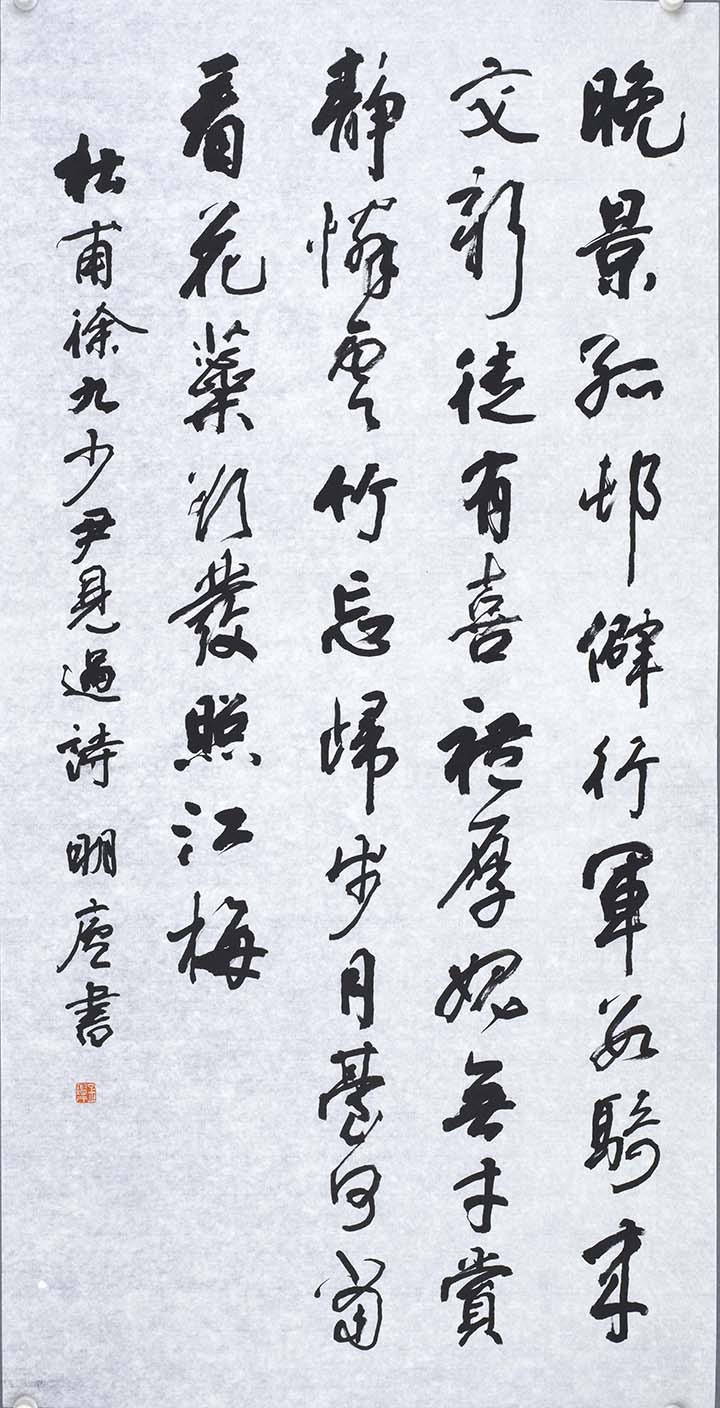 晚景孤邨僻行軍數騎來
交新徒有喜禮厚媿無才賞
靜憐雲竹忘歸步月臺何當
看花蘂欲發照江梅
杜甫徐九少尹見過詩 明廬書